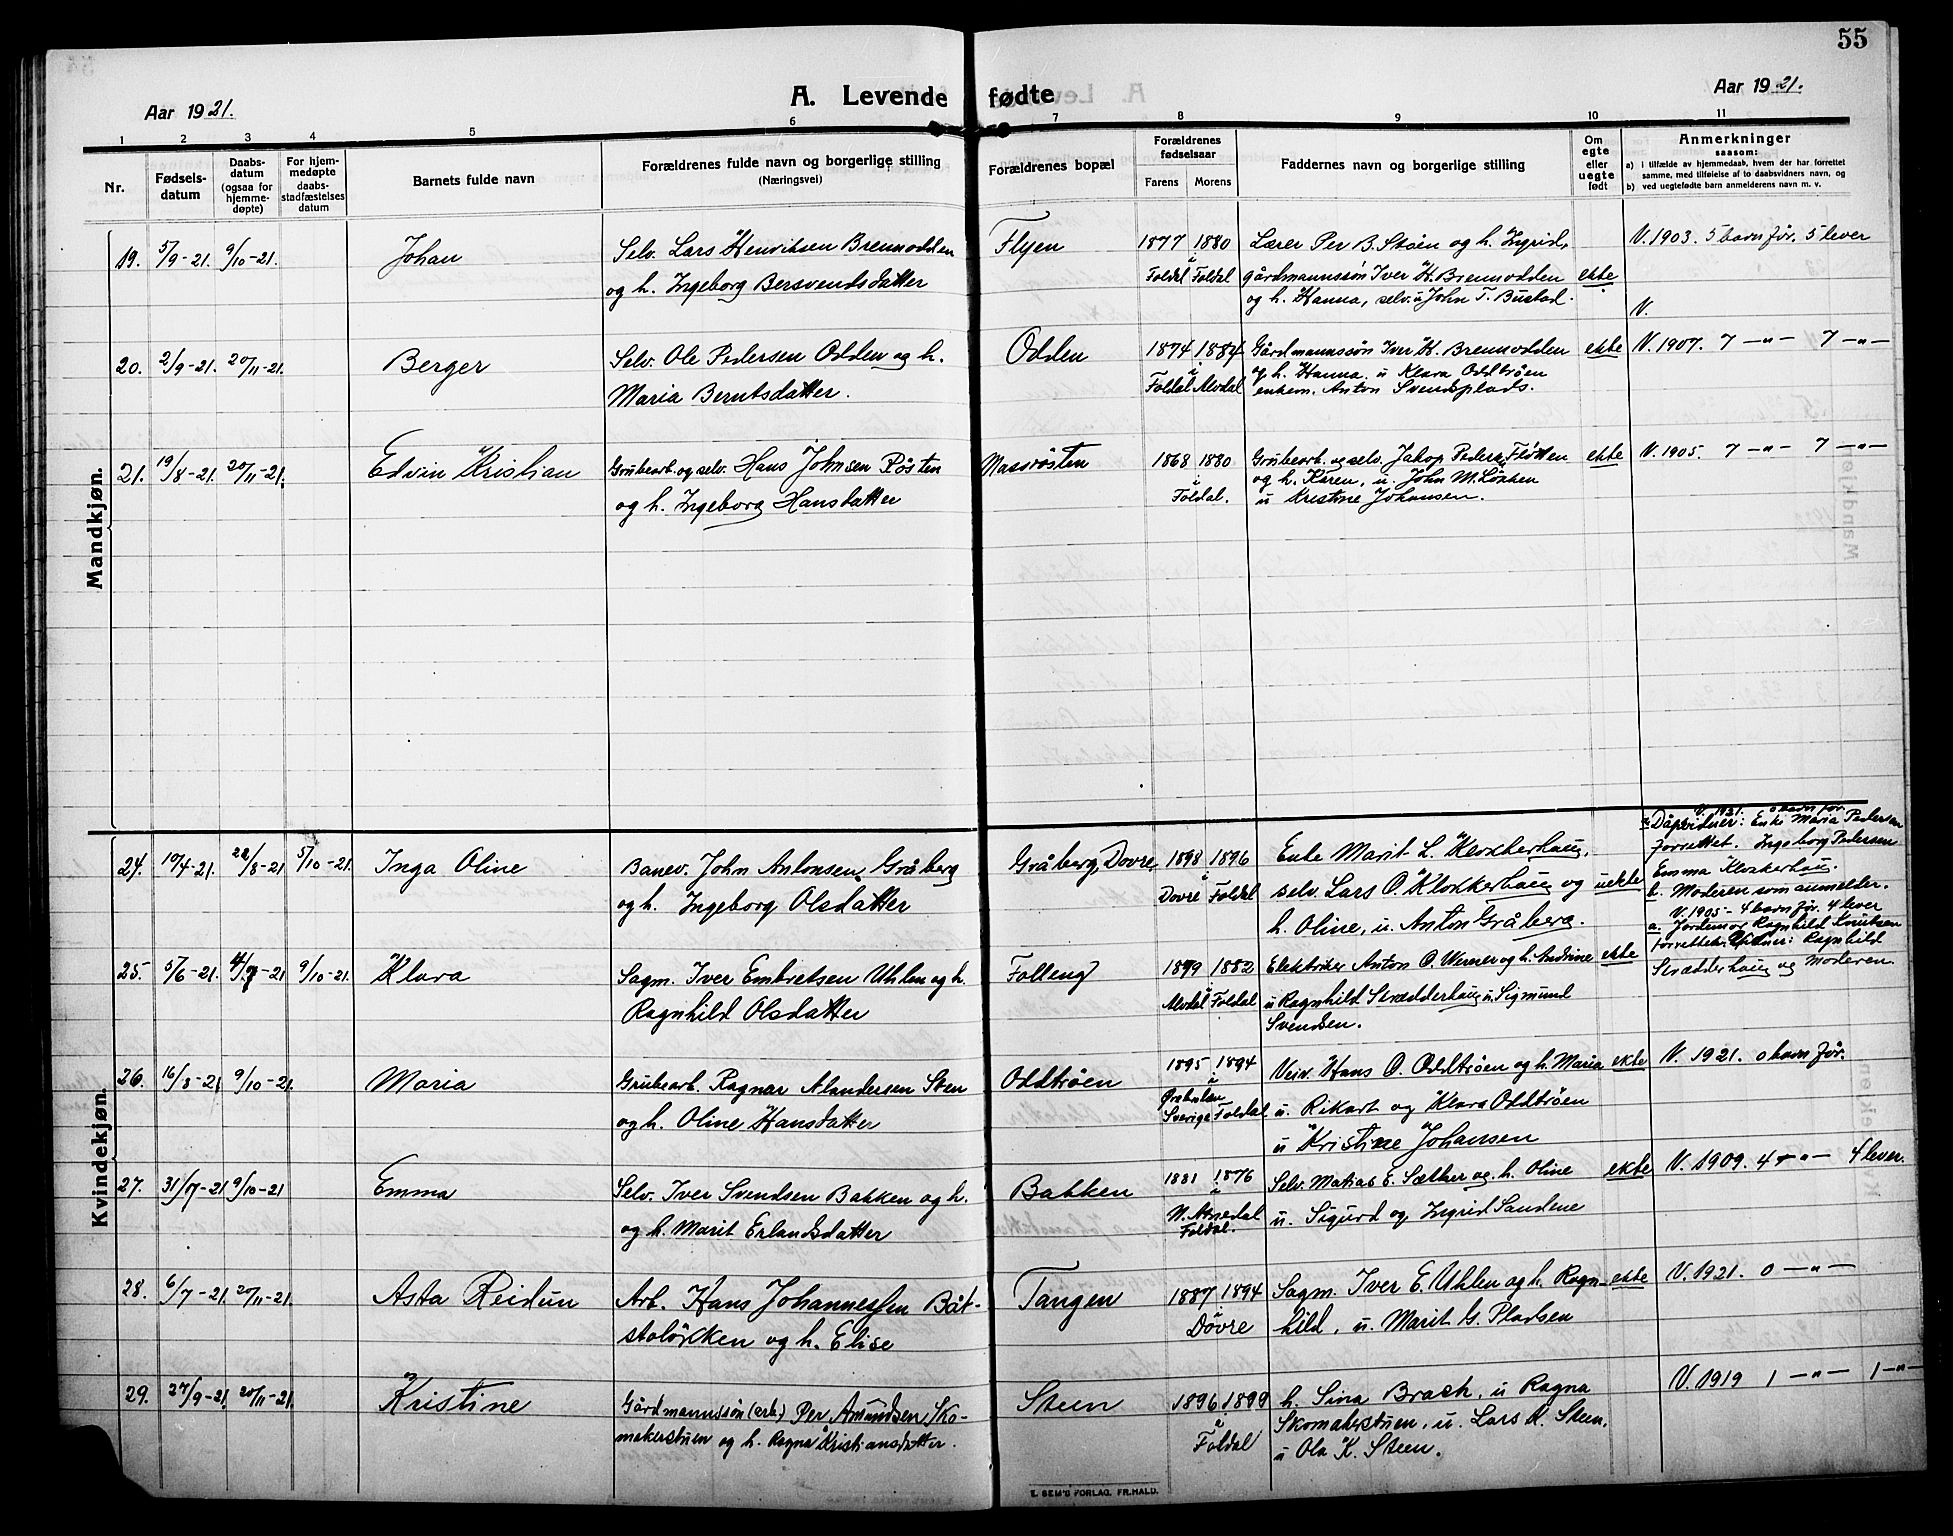 55
Aar 1921.
A. Levende fødte
Aar 1921.
1 2 3 4 5 6 7 8 9 10 11
Nr.
Fødsels-
datum
Daabs-
datum
(ogsaa for
hjemme-
døpte)
For hjem-
medøpte
daabs-
stadfæstelses
datum
Barnets fulde navn
Forældrenes fulde navn og borgerlige stilling
(Næringsvei)
Forældrenes bopæl
Forældrenes
fødselsaar
Farens Morens
Faddernes navn og borgerlige stilling
Om
egte
eller
uegte
født
Anmerkninger
saasom:
a) i tilfælde av hjemmedaab, hvem der har forrettet
samme, med tilføielse af to daabsvidners navn, og
b) ved uegtefødte barn anmelderens navn m. v.
Mandkjøn.
19. 5/9-21. 9/10-21. Johan
Selv. Lars Henriksen Brennodden
og h. Ingeborg Bersvendsdatter
Flyen
1877 1880
i
Foldal Foldal
Lærer Per B. Støen og h. Ingrid,
gårdmannssøn Iver H. Brennodden
og h. Hanna, selv. u John T. Bustad.
ekte
V. 1903. 5 barn før. 5 lever
V.
20. 2/9-21. 20/11-21. Berger
Selv. Ole Pedersen Odden og h.
Maria Berntsdatter.
Odden
1874 1884
i
Foldal Alvdal
Gårdmannssøn Iver H. Brennodden
og h. Hanna. u Klara Oddtrøen
enkem. Anton Svendsplads.
ekte
V. 1907. 7 -„- 7 -„-
21. 19/8-21. 20/11-21. Edvin Kristian
Grubearb. og selv. Hans Johnsen Røsten
og h. Ingeborg Hansdatter
Massrøsten
1868 1880
i
Foldal.
Grubearb. og selv. Jakop Peders. Fløtten
og h. Karen, u. John M. Løkken
u Kristine Johansen.
ekte
V. 1905. 7 -„- 7 -„-
Kvindekjøn.
24. 10/4-21. 22/8-21 5/10-21. Inga Oline
Banev. John Antonsen Gråberg
og h. Ingeborg Olsdatter
Gråberg, Dovre.
1898 1896
i
Dovre Foldal
Enke Marit L. Klokkerhaug,
selv. Lars O. Klokkerhaug og
h. Oline, u. Anton Gråberg.
uekte
V. 1921. 0 barn før.
a. Dåpsvidner: Enke Maria Pedersen
forrettet. Ingeborg Pedersen
Emma Klokkerhaug.
b. Moderen som anmelder.
25. 5/6-21. 4/7-21 9/10-21. Klara
Sagm. Iver Embretsen Uhlen og h.
Ragnhild Olsdatter
Folleng
1879 1882
i
Alvdal Foldal
Elektriker Anton O. Werner og h. Andrine
u Ragnhild Strædderhaug u. Sigmund
Svendsen.
ekte
V. 1905 - 4 barn før. 4 lever
a. Jordemor Ragnhild Knutsen
forrettet. Vidner: Ragnhild
Strædderhaug og Moderen.
26. 16/8-21 9/10-21. Maria
Grubearb. Ragnar Alandersen Sten
og h. Oline Hansdatter
Oddtrøen
1895 1894
i
Sverige Foldal
Veiv. Hans O. Oddtrøen og h. Maria
u. Rikart og Klara Oddtrøen
u Kristine Johansen
ekte
V. 1921. 0 barn før.
27. 31/7-21 9/10-21 Emma
Selv. Iver Svendsen Bakken og h.
og h. Marit Erlandsdatter
Bakken
1881 1876
i
Foldal.
Selv. Matias E. Sæther og h. Oline
u. Sigurd og Ingrid Sandene
ekte
V. 1909. 4 -„- 4 lever.
28. 6/7-21. 20/11-21. Asta Reidun
Arb. Hans Johannessen Båt-
stoløkken og h. Elise
Tangen
1887 1894
i
Dovre
Sagm. Iver E. Uhlen og h. Ragn-
hild, u. Marit G. Pladsen
ekte
V. 1921. 0 -„-
29. 27/9-21. 20/11-21. Kristine
Gårdmannssøn (arb.) Per Amundsen Sko-
makerstuen og h. Ragna Kristiansdatter.
Steen
1896 1899
i
Foldal
h. Siva Brach, u Ragna
Skomakerstuen, u. Lars K. Steen.
u Ola K. Steen.
V. 1919 1 -„- 1 -„-
E. SEM'S FORLAG. FR.HALD.